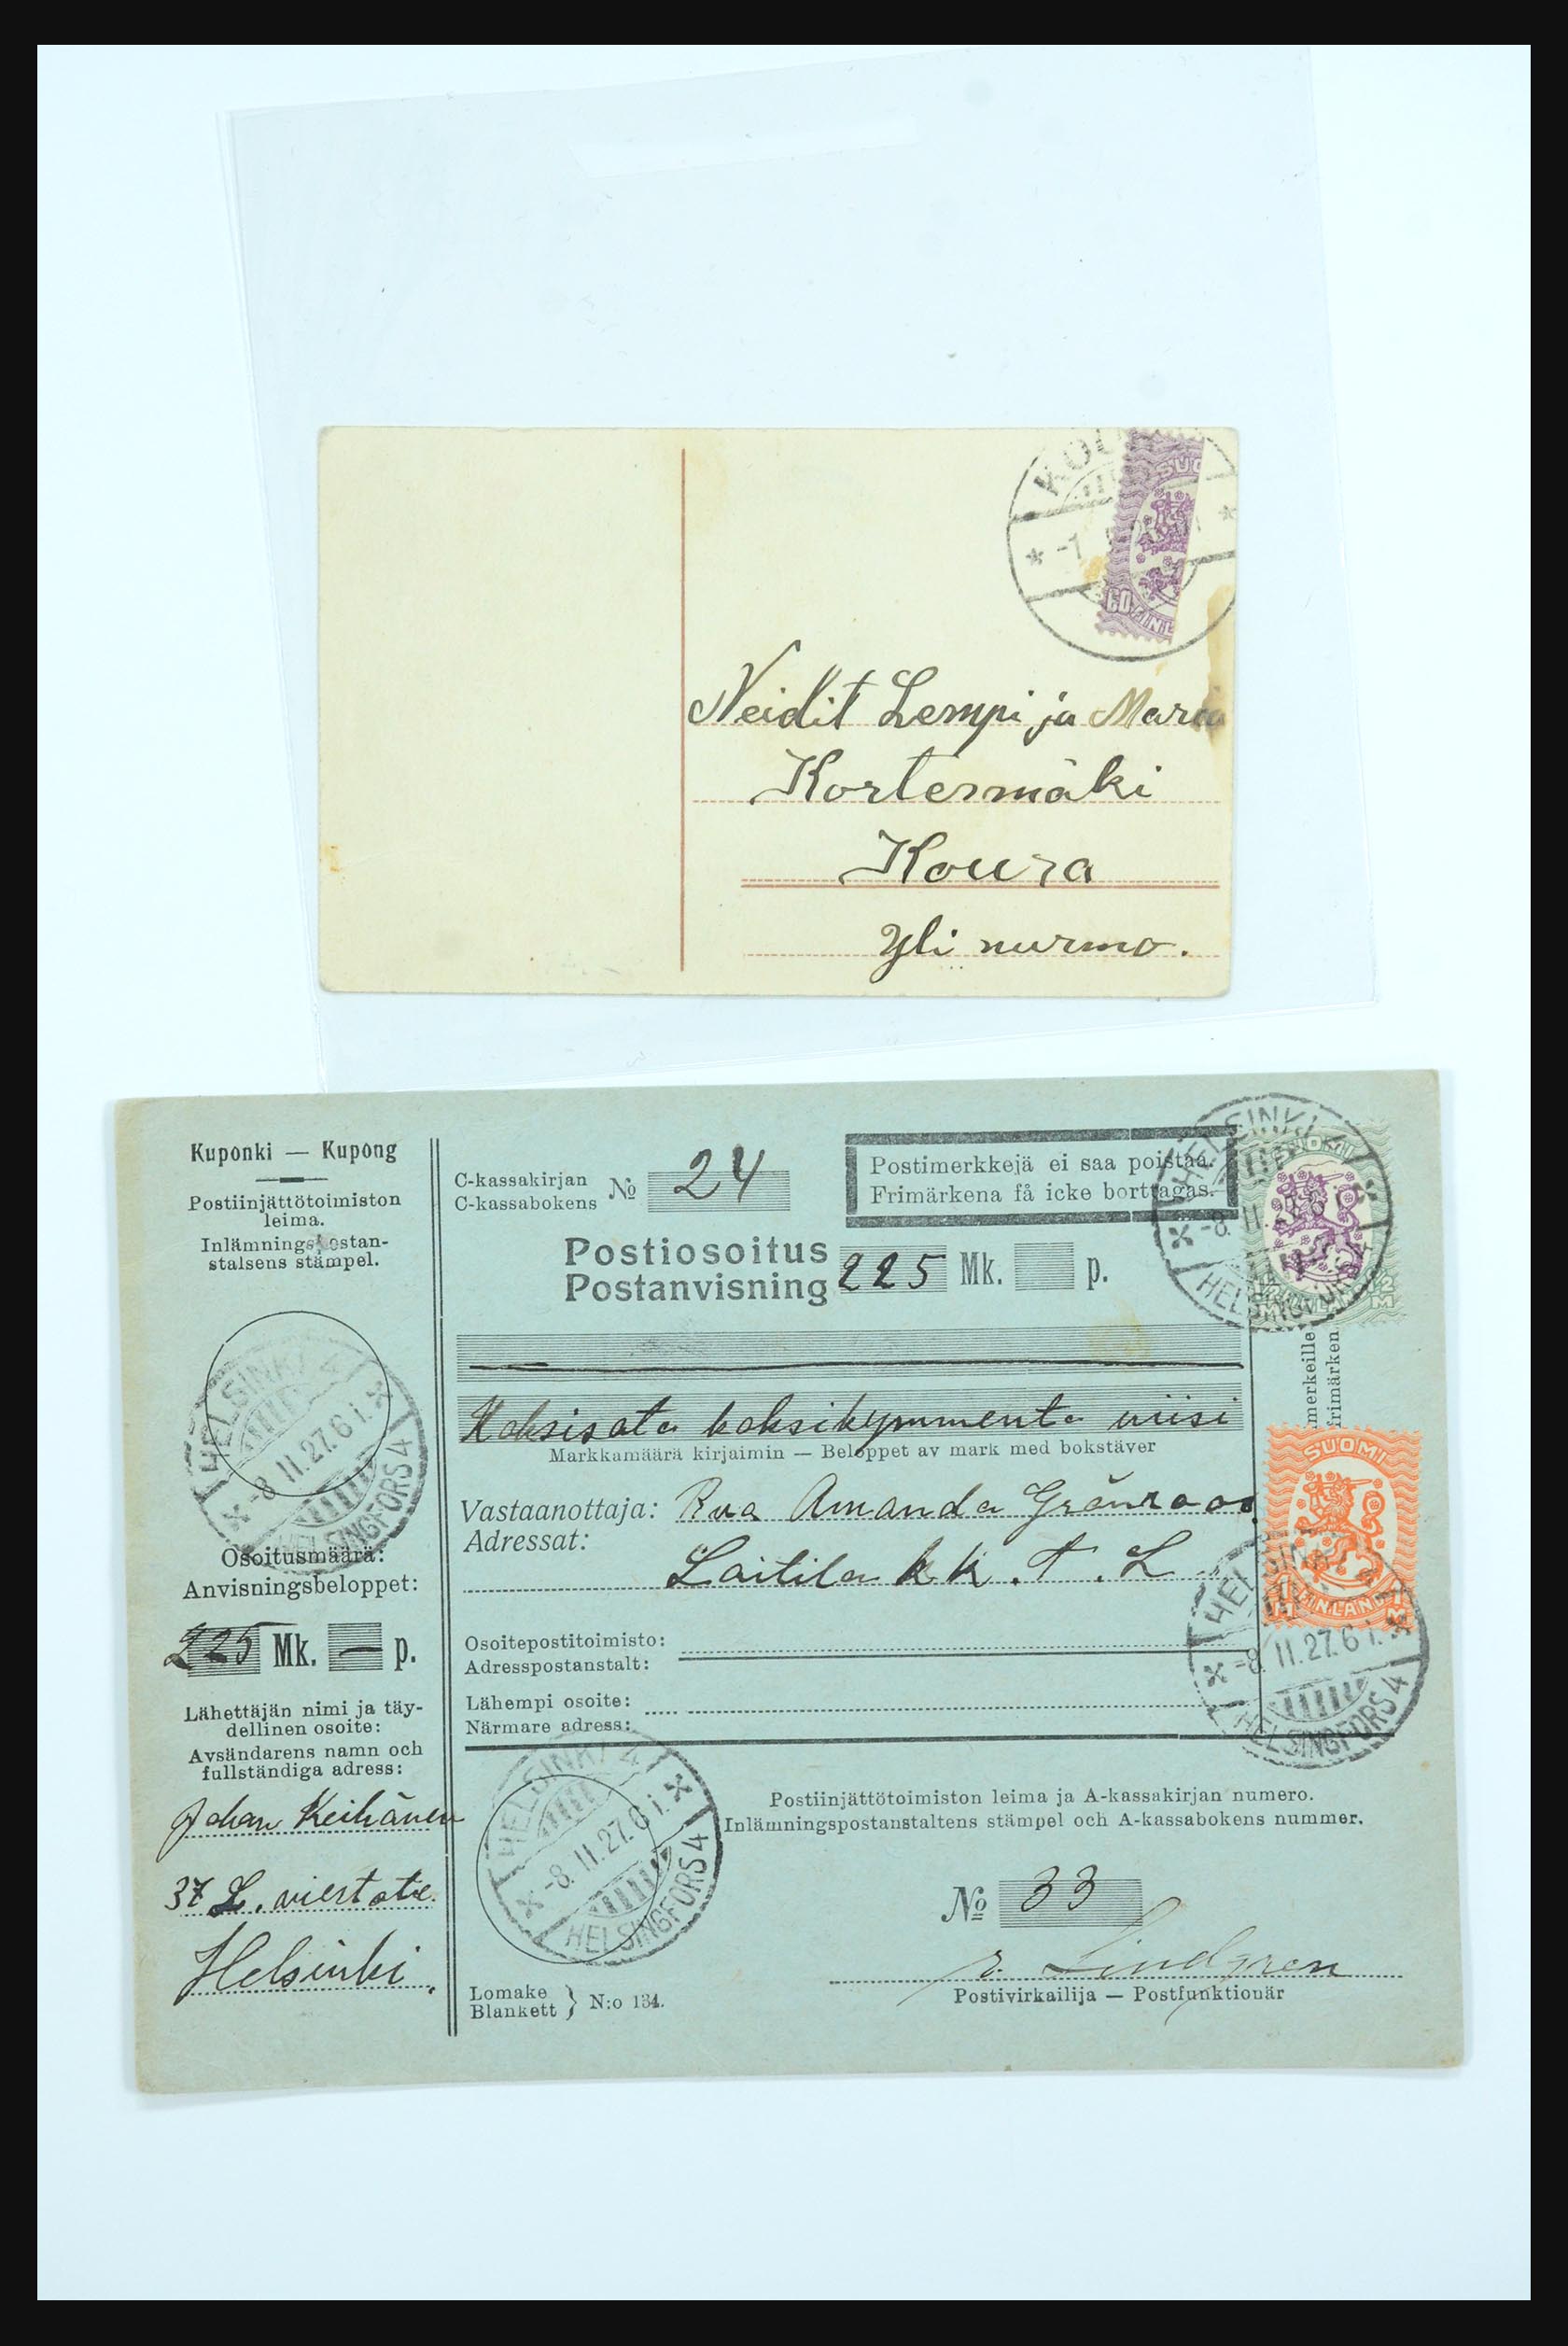 KOU
* -1 *
SUO
60 FINL
Neidit Lempi ja Maria
Kortesmäki
Koura
Yli nurmo.
Kuponki — Kupong
Postiinjättötoimiston
leima.
Inlämningspostan-
stalsens stämpel.
HELSINKI 4
-8.II.27.6 i.
HELSINGFORS 4
Osoitusmäärä:
Anvisningsbeloppet:
225 Mk. — p.
Lähettäjän nimi ja täy-
dellinen osoite:
Avsändarens namn och
fullständiga adress:
Johan Keihänen
37 L. viertotie.
Helsinki.
C-kassakirjan
C-kassabokens № 24
Postimerkkejä ei saa poistaa.
Frimärkena få icke borttagas.
Postiosoitus
Postanvisning 225 Mk. p.
Kaksisata kaksikymmentä viisi
Markkamäärä kirjaimin — Beloppet av mark med bokstäver
Vastaanottaja: Rva Amanda Grönroos
Adressat:
Laitila k k. T. L
Osoitepostitoimisto:
Adresspostanstalt:
Lähempi osoite:
Närmare adress:
HELSINKI 4
-8.II.27.6 i.
HELSINGFORS 4
Postiinjättötoimiston leima ja A-kassakirjan numero.
Inlämningspostanstaltens stämpel och A-kassabokens nummer.
№ 33
Lindgren
Postivirkailija — Postfunktionär
Lomake
Blankett } N:o 134.
HELSINKI 4
-8.II.
HELSINGFORS 4
SUOMI
FINLAND
2 M
merkeille
frimärken
SUOMI
1 M FINLAND 1 M
HELSINKI
-8.II.27.6 i.
HELSINGFORS 4